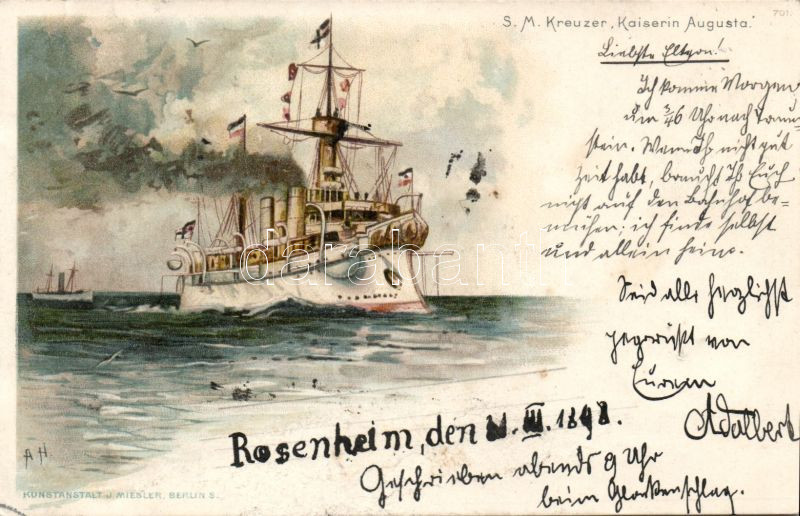 701.
S. M. Kreuzer „Kaiserin Augusta“.
Liebste Eltern!
Ich komme Morgen
um 3/46 Uhr nach Traun-
stein. Wenn Ih nicht gut
Zeit habt, braucht Ih Euch
nicht auf den Bahnhof be-
mühen; ich finde selbst
und allein heim.
Seid alle herzlichst
gegrüßt von
Eurem
Adalbert
Rosenheim, den III. 1898.
Geschrieben abends 9 Uhr
beim Glockenschlag.
AH
KUNSTANSTALT J. MIESLER, BERLIN S.
darabanth